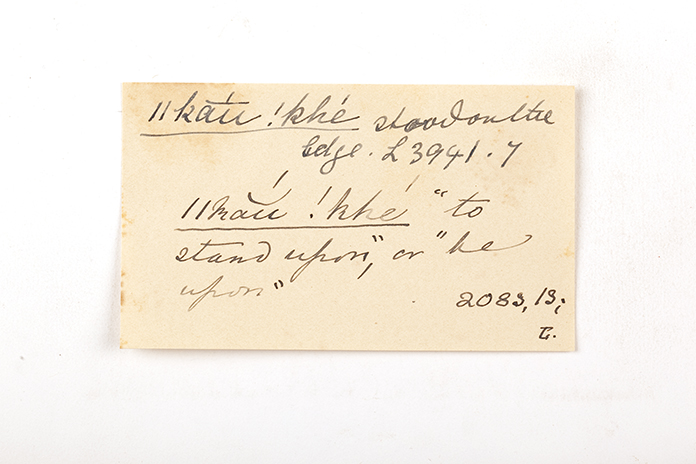 ǁkắū ǃkhé stood on the
Edge. L 3941. 7
ǁkắū ǃkhé "to
stand upon", or "be
upon"
2083, 13;
L.